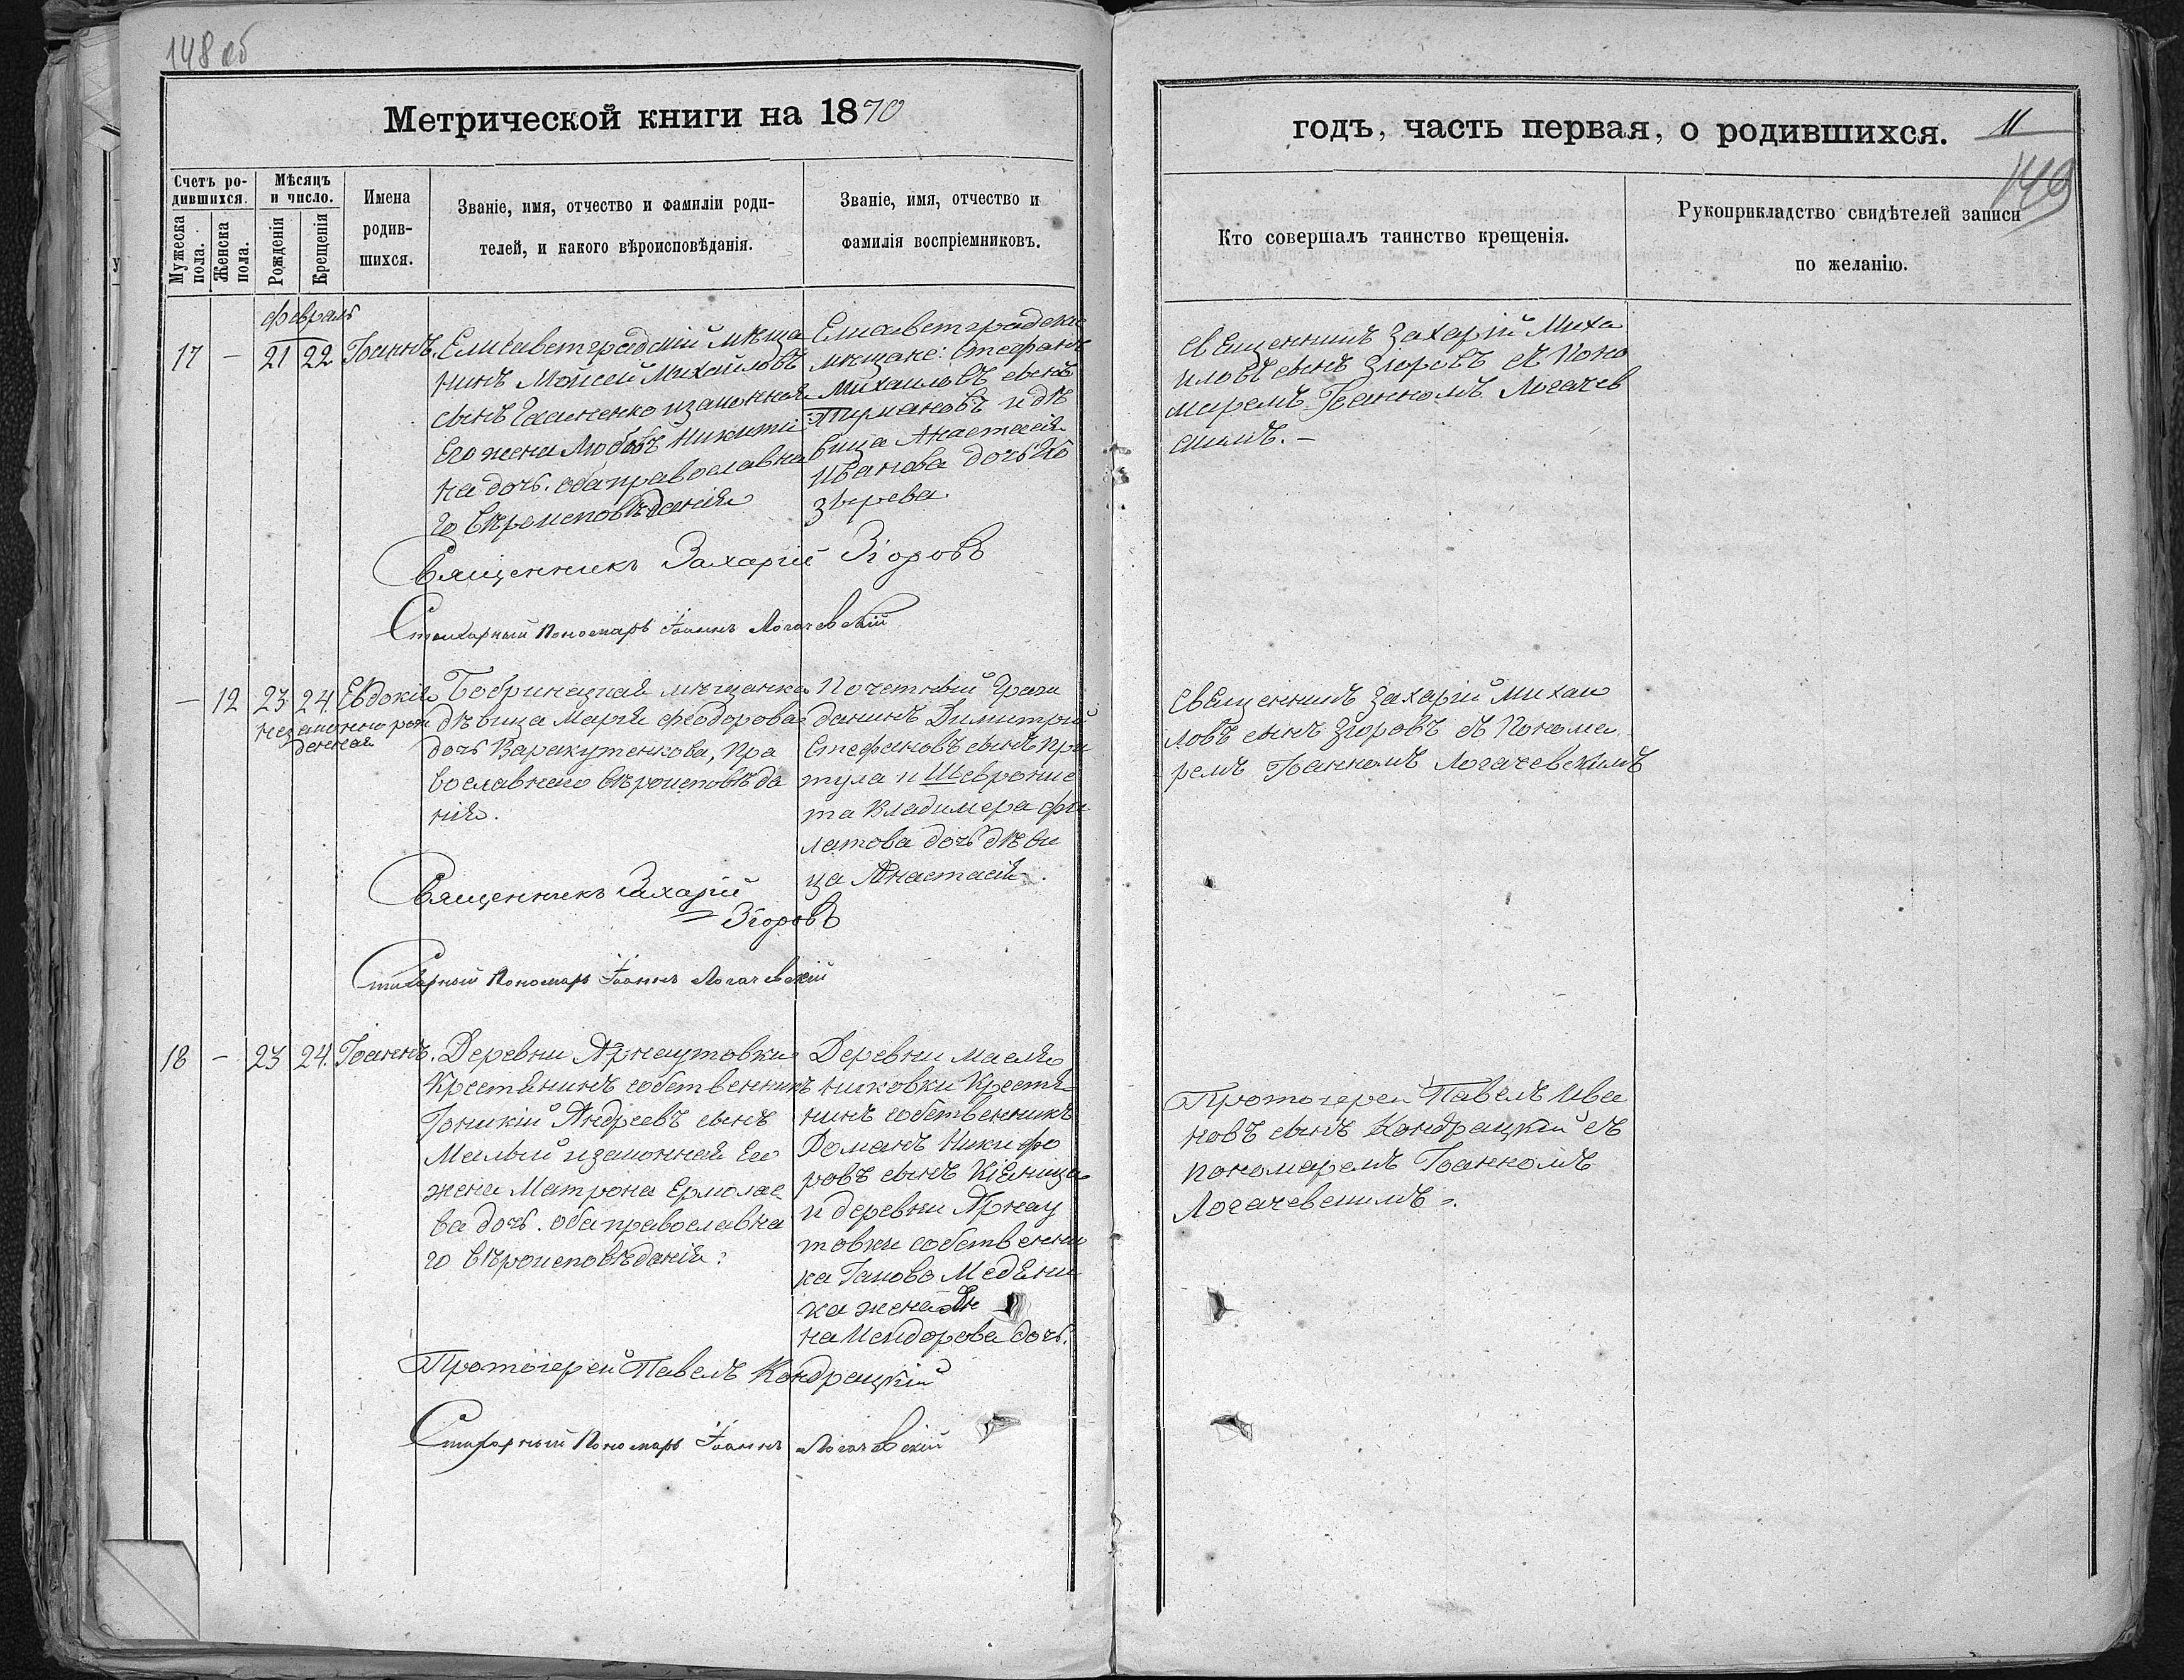 148 об
Метрической книги на 1870
годъ, часть первая, о родившихся.
11
149
Счетъ родившихся.
Мужеска пола.
Женска пола.
Мѣсяцъ и число.
Рожденія
Крещенія
Имена родившихся.
Званіе, имя, отчество и фамиліи роди-
телей, и какого вѣроисповѣданія.
Званіе, имя, отчество и
фамилія воспріемниковъ.
Кто совершалъ таинство крещенія.
Рукоприкладство свидѣтелей записи
по желанію.
февраль
17 – 21 22 Іоаннъ.
Елисаветградскій мѣща
нинъ Моисей Михайловъ
сынъ изаконная
его жена Любовъ Никити
на дочь. оба православна
го вѣроисповѣданія
Елисаветградскіе
мѣщане: Стефанъ
Михаиловъ сынъ
Тирмановъ и дѣ
вица Анастасія
Иванова дочь Ко
зырева.
Священникъ Захарій Миха
иловъ сынъ Згоровъ съ Поно
маремъ Іоанномъ Логачев
скимъ. –
Священникъ Захарій Згоровъ
Стихарный Пономарь Іоаннъ Логачевскій
– 12 23 24. Евдокія
незаконнорож
денная
Бобринецкая мѣщанка
дѣвица Марія Феодорова
дочь Варакутенкова, Пра
вославнаго вѣроисповѣда
нія.
Почетный Граж
данинъ Димитрій
Стефановъ сынъ При
тула и Шевроние
та Владимера Фи
латова дочь дѣви
ца Анастасія.
Священникъ Захарій Михаи
ловъ сынъ Згоровъ съ Понома
ремъ Іоанномъ Логачевскимъ
Священникъ Захарій
Згоровъ
Стихарный Пономарь Іоаннъ Логачевскій
18 – 23 24. Іоаннъ.
Деревни Арнаутовки
Крестянинъ собственникъ
Іоникій Андреевъ сынъ
Малый изаконная Его
жена Матрона Ермолае
ва дочь. оба православна
го вѣроисповѣданія:
Деревни Масля
никовки Крестя
нинъ собственникъ
Романъ Никифо
ровъ сынъ Кіяница
и деревни Арнау
товки собственни
ка Іакова Медяни
ка жена Ан
на Исидорова дочь.
Протоіерей Павелъ Ива
новъ сынъ Кондрацкій съ
пономаремъ Іоанномъ
Логачевскимъ.
Протоіерей Павелъ Кондрацкій
Стихарный Пономарь Іоаннъ Логачевскій